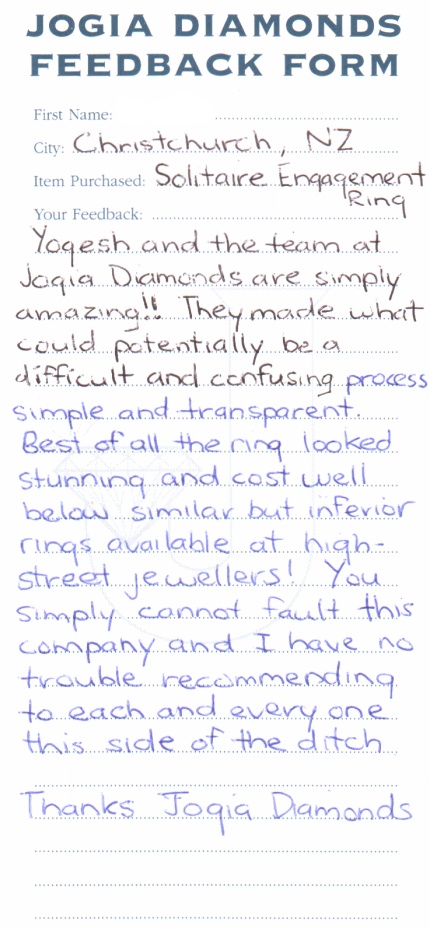 JOGIA DIAMONDS
FEEDBACK FORM
First Name:
City: Christchurch, NZ
Item Purchased: Solitaire Engagement
Ring
Your Feedback:
Yogesh and the team at
Jogia Diamonds are simply
amazing!! They made what
could potentially be a
difficult and confusing process
simple and transparent.
Best of all the ring looked
stunning and cost well
below similar but inferior
rings available at high-
street jewellers! You
simply cannot fault this
company and I have no
trouble recommending
to each and every one
this side of the ditch
Thanks Jogia Diamonds